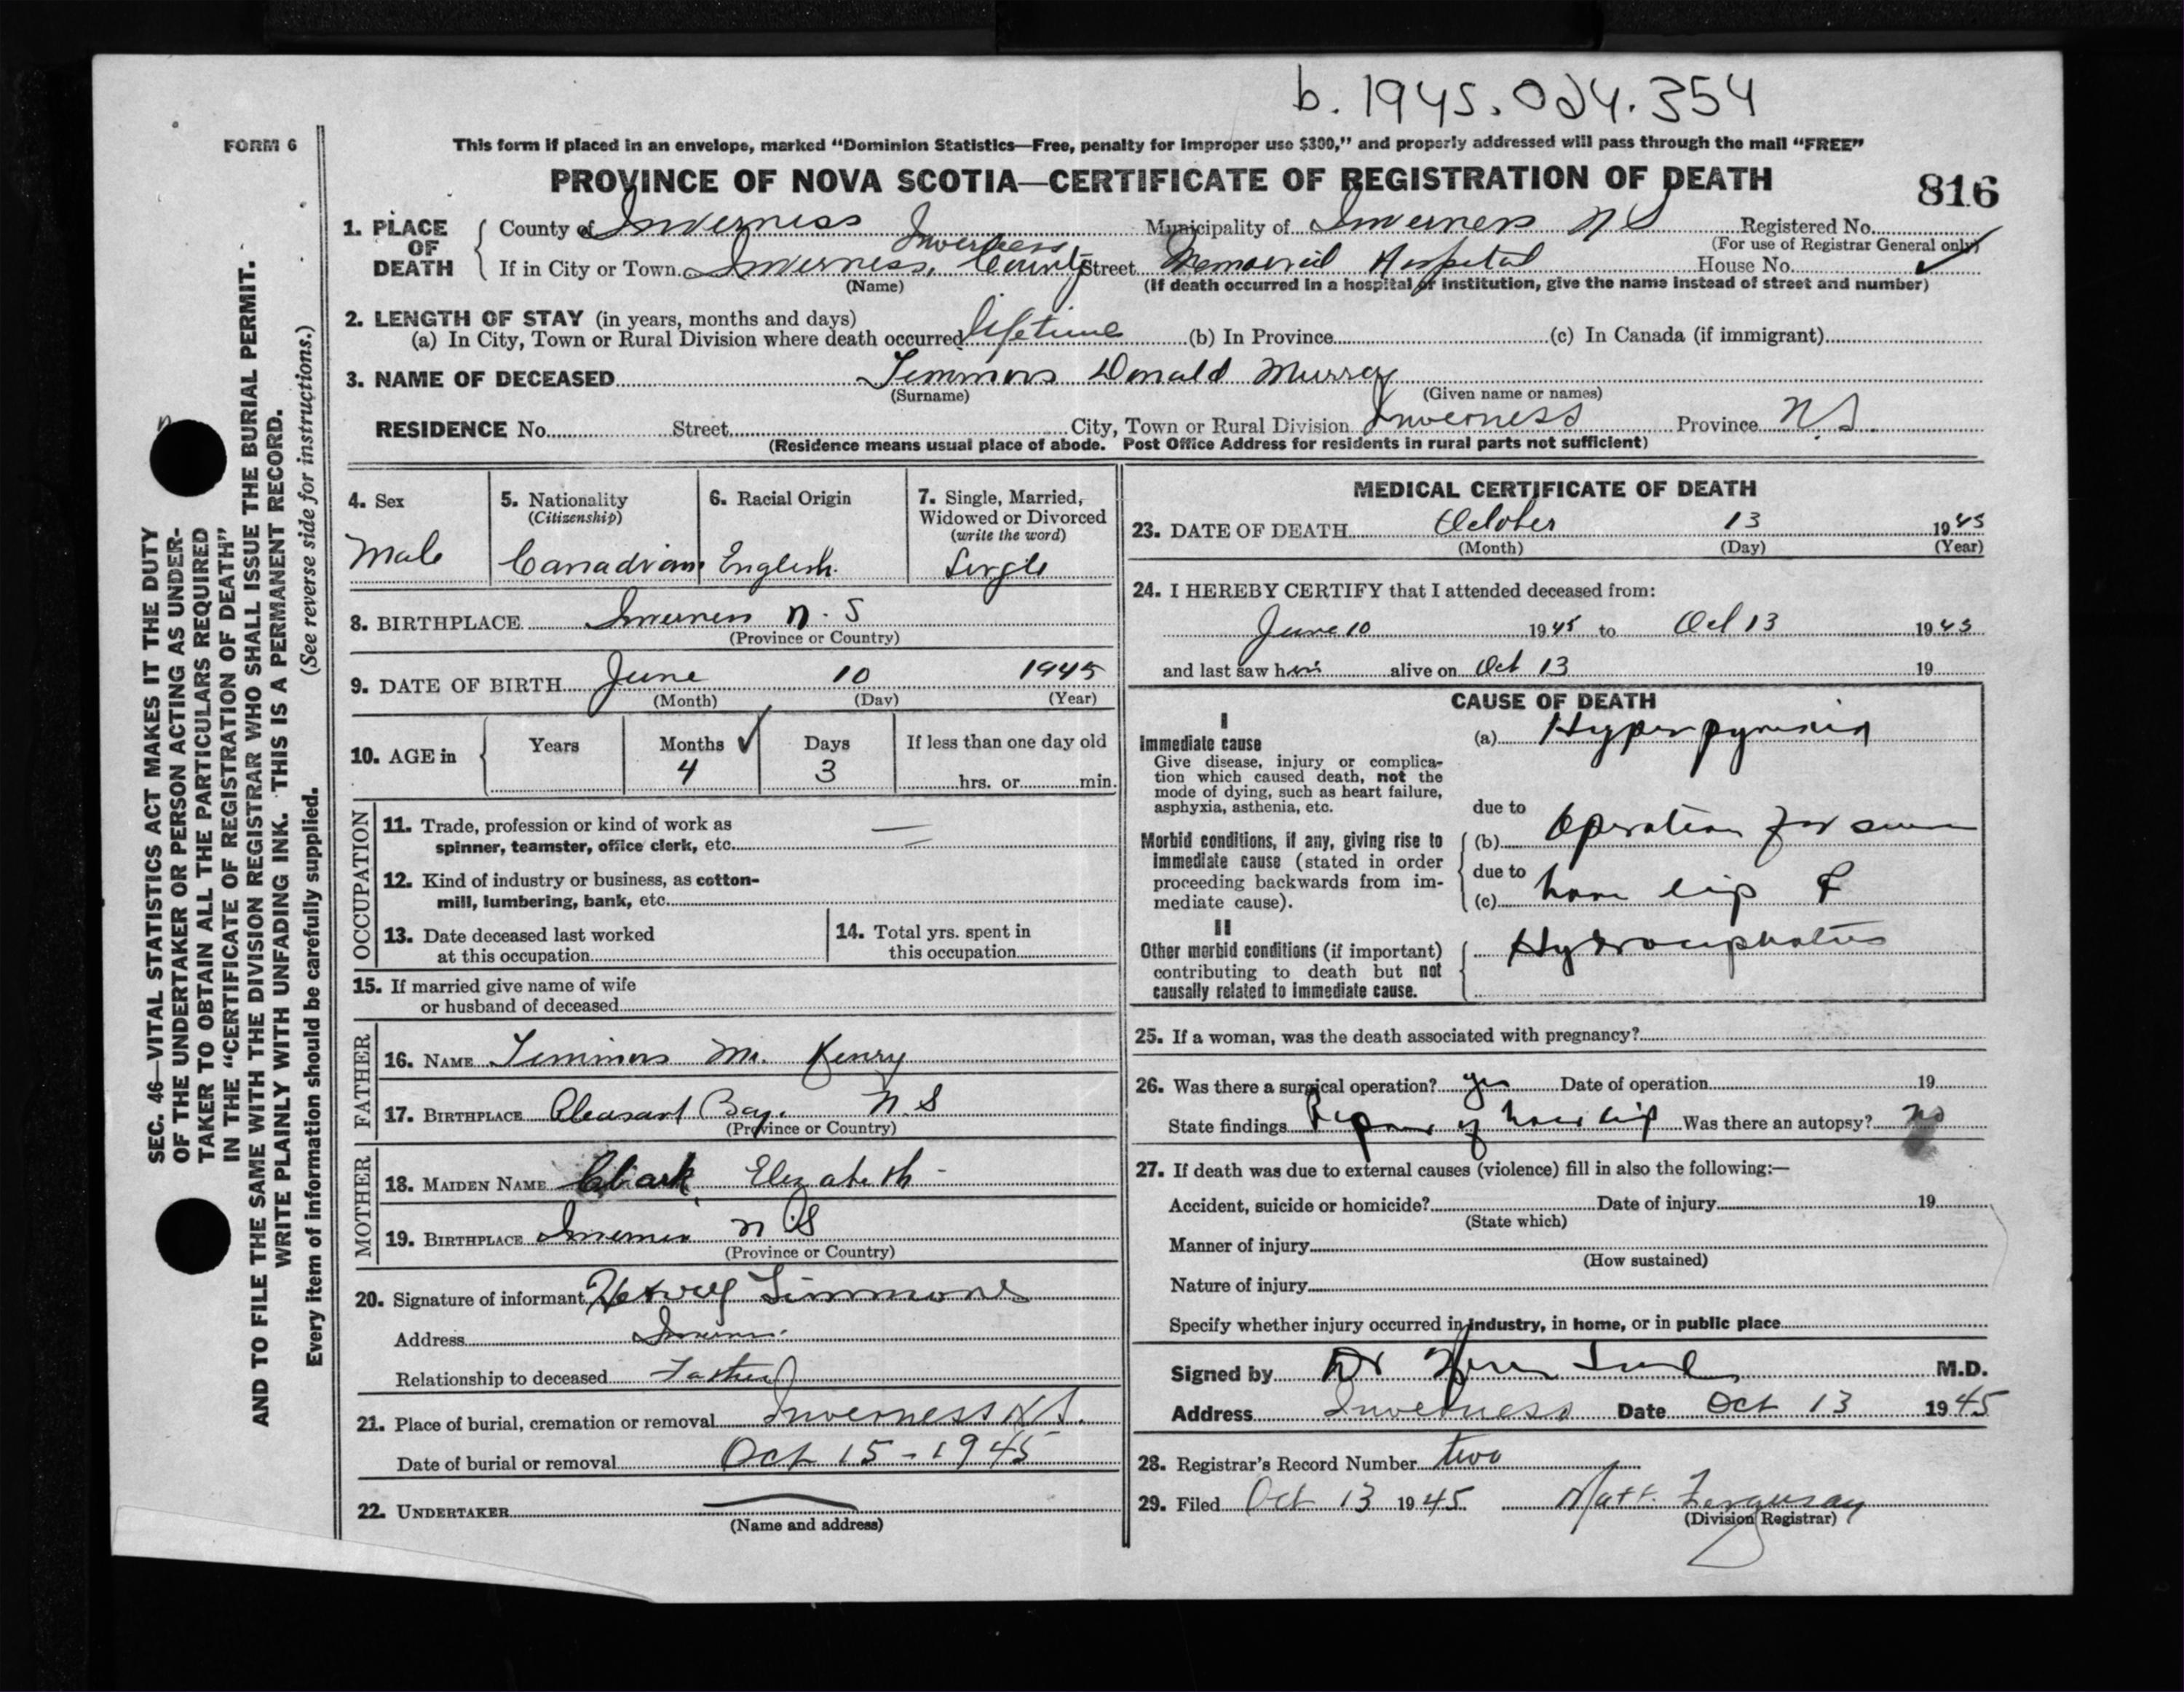 b. 1945.024.354
FORM 6
This form if placed in an envelope, marked "Dominion Statistics—Free, penalty for improper use $300," and properly addressed will pass through the mail "FREE"
PROVINCE OF NOVA SCOTIA—CERTIFICATE OF REGISTRATION OF DEATH
816
1. PLACE OF DEATH County of Inverness Municipality of Inverness N S Registered No.
(For use of Registrar General only)
If in City or Town Inverness, Inverness County Street Memorial Hospital House No.
(Name) (If death occurred in a hospital or institution, give the name instead of street and number)
2. LENGTH OF STAY (in years, months and days)
(a) In City, Town or Rural Division where death occurred lifetime (b) In Province (c) In Canada (if immigrant)
3. NAME OF DECEASED Timmons Donald Murray
(Surname) (Given name or names)
RESIDENCE No. Street City, Town or Rural Division Inverness Province N.S.
(Residence means usual place of abode. Post Office Address for residents in rural parts not sufficient)
4. Sex
Male
5. Nationality
(Citizenship)
Canadian
6. Racial Origin
English
7. Single, Married,
Widowed or Divorced
(write the word)
Single
8. BIRTHPLACE Inverness N. S
(Province or Country)
9. DATE OF BIRTH June 10 1945
(Month) (Day) (Year)
10. AGE in Years Months Days If less than one day old
4 3
hrs. or min.
OCCUPATION
11. Trade, profession or kind of work as
spinner, teamster, office clerk, etc.
12. Kind of industry or business, as cotton-
mill, lumbering, bank, etc.
13. Date deceased last worked
at this occupation
14. Total yrs. spent in
this occupation
15. If married give name of wife
or husband of deceased
FATHER
16. NAME Timmons Mr. Henry
17. BIRTHPLACE Pleasant Bay. N. S
(Province or Country)
MOTHER
18. MAIDEN NAME Clark Elizabeth
19. BIRTHPLACE Inverness N S
(Province or Country)
20. Signature of informant Timmons
Address Inverness
Relationship to deceased Father
21. Place of burial, cremation or removal Inverness N.S.
Date of burial or removal Oct 15 - 1945
22. UNDERTAKER
(Name and address)
MEDICAL CERTIFICATE OF DEATH
23. DATE OF DEATH October 13 1945
(Month) (Day) (Year)
24. I HEREBY CERTIFY that I attended deceased from:
June 10 1945 to Oct 13 1945
and last saw him alive on Oct 13 19
CAUSE OF DEATH
I
Immediate cause
Give disease, injury or complica-
tion which caused death, not the
mode of dying, such as heart failure,
asphyxia, asthenia, etc.
(a) Hyperpyrexia
due to
Morbid conditions, if any, giving rise to
immediate cause (stated in order
proceeding backwards from im-
mediate cause).
(b) Operation for
due to
(c) hare lip &
II
Other morbid conditions (if important)
contributing to death but not
causally related to immediate cause.
Hydrocephalus
25. If a woman, was the death associated with pregnancy?
26. Was there a surgical operation? yes Date of operation 19
State findings Repair of hare lip Was there an autopsy? No
27. If death was due to external causes (violence) fill in also the following:—
Accident, suicide or homicide? Date of injury 19
(State which)
Manner of injury
(How sustained)
Nature of injury
Specify whether injury occurred in industry, in home, or in public place
Signed by Dr M.D.
Address Inverness Date Oct 13 1945
28. Registrar's Record Number two
29. Filed Oct 13 1945 Matt. Ferguson
(Division Registrar)
SEC. 46—VITAL STATISTICS ACT MAKES IT THE DUTY
OF THE UNDERTAKER OR PERSON ACTING AS UNDER-
TAKER TO OBTAIN ALL THE PARTICULARS REQUIRED
IN THE "CERTIFICATE OF REGISTRATION OF DEATH"
AND TO FILE THE SAME WITH THE DIVISION REGISTRAR WHO SHALL ISSUE THE BURIAL PERMIT.
WRITE PLAINLY WITH UNFADING INK. THIS IS A PERMANENT RECORD.
Every item of information should be carefully supplied. (See reverse side for instructions.)